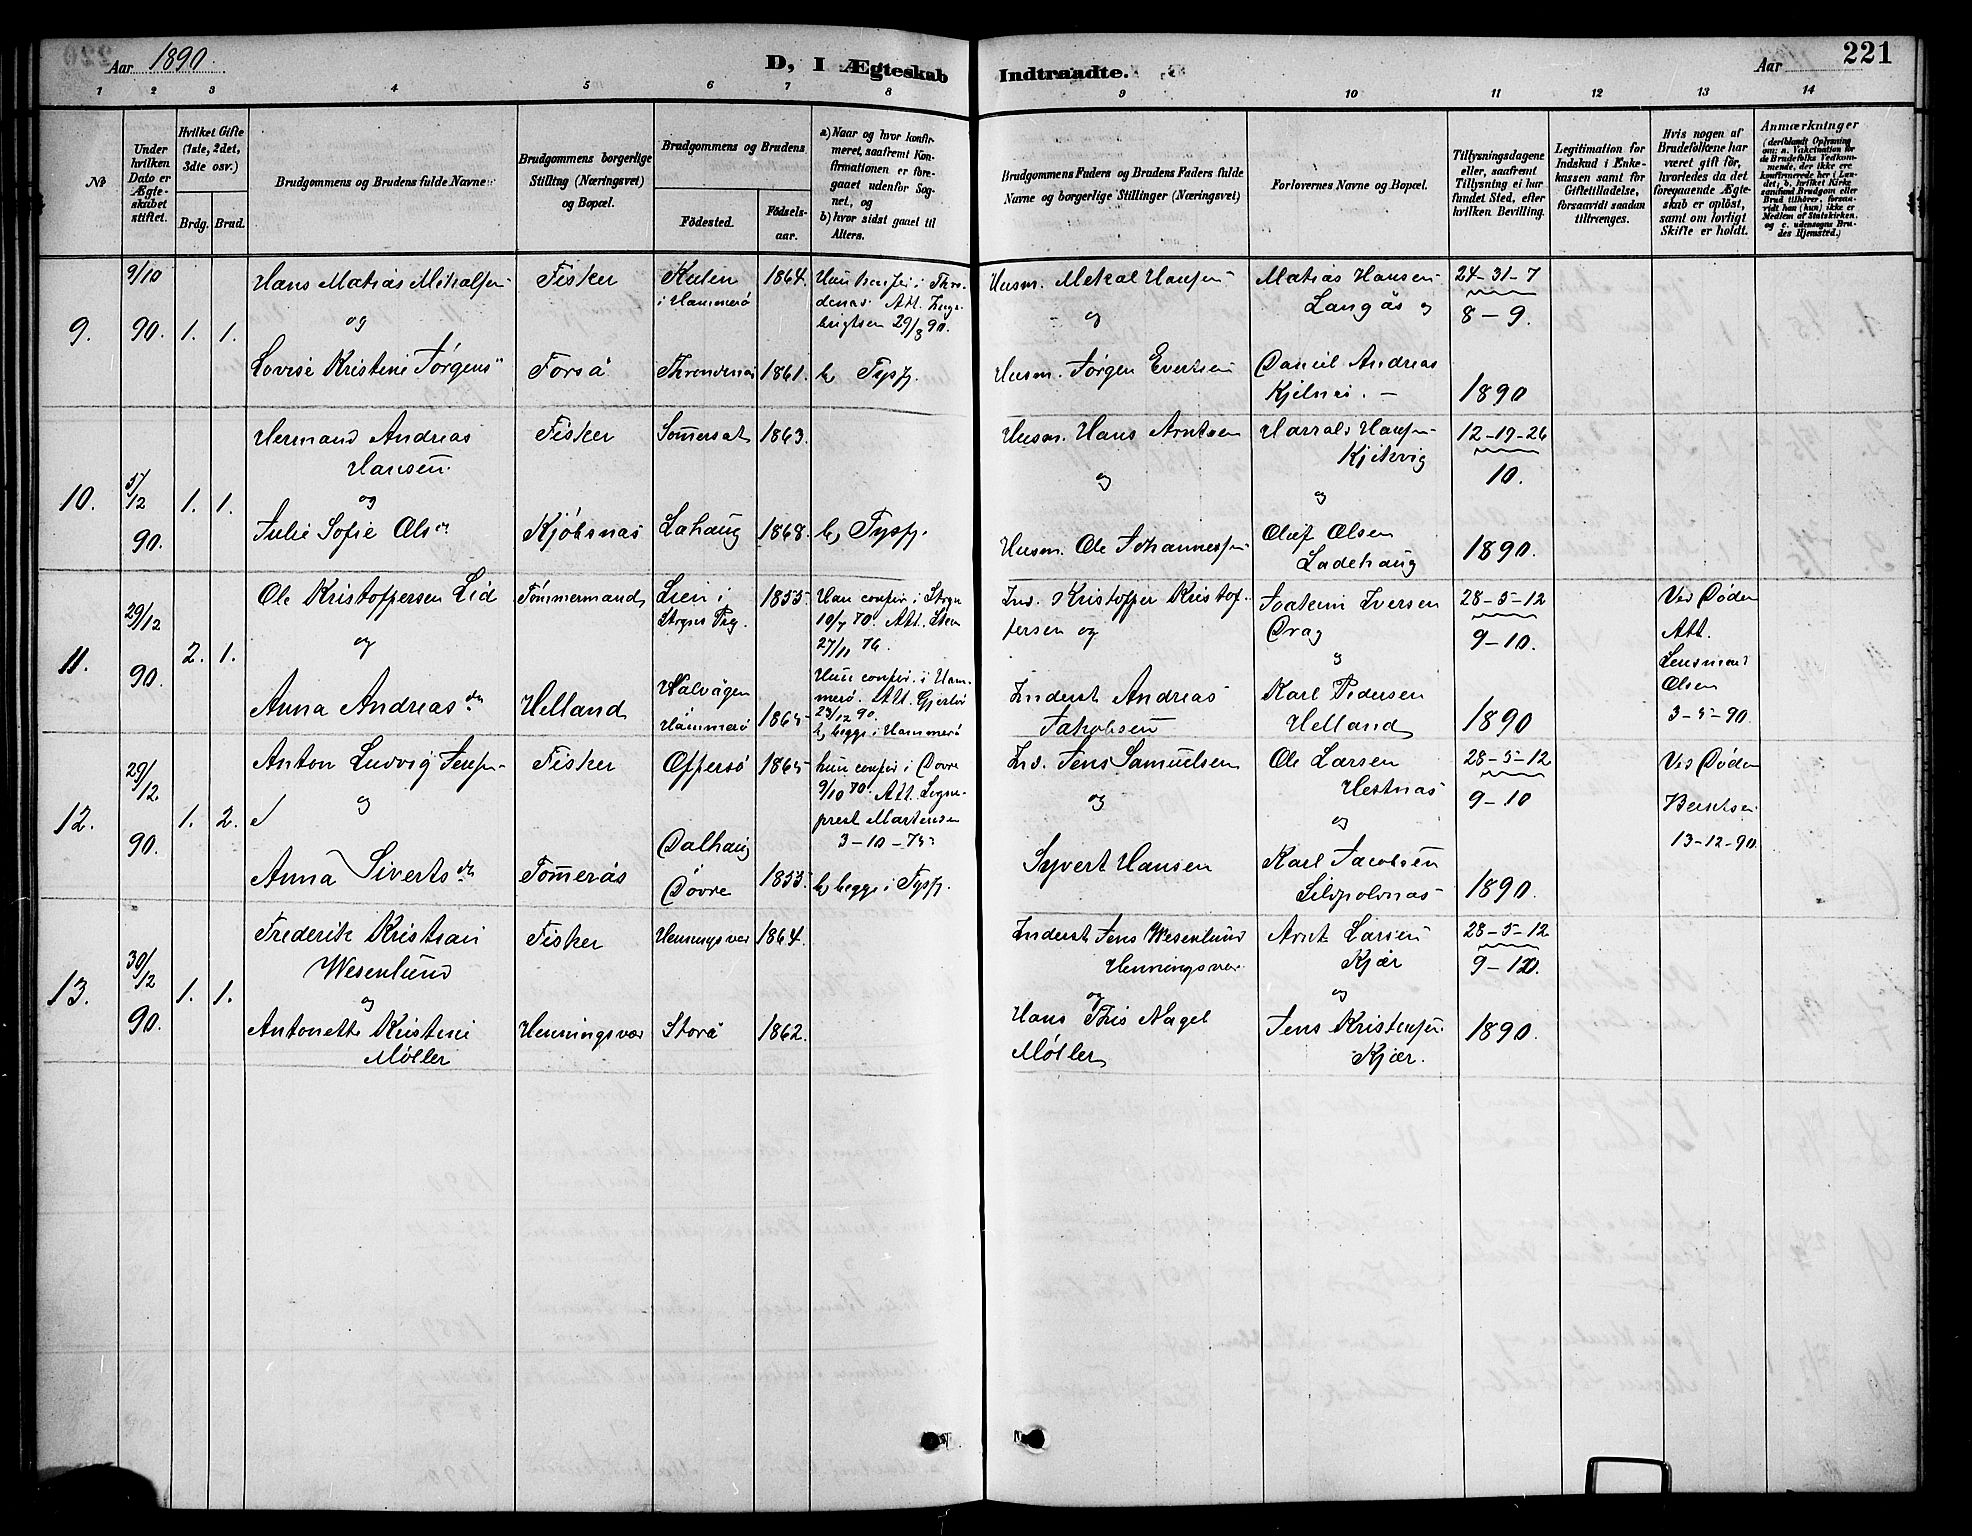 Aar 1890.
D, I Ægteskab Indtraadte.
Aar 221
1 2 3 4 5 6 7 8 9 10 11 12 13 14
Nr
Under hvilken Dato er Ægteskabet stiftet.
Hvilket Gifte (1ste, 2det, 3die osv.)
Brdg. Brud.
Brudgommens og Brudens fulde Navne
Brudgommens borgerlige Stilling (Næringsvei) og Bopæl.
Brudgommens og Brudens
Födested. Födselsaar.
a) Naar og hvor konfirmeret, saafremt Konfirmationen er foregaaet udenfor Sognet, og
b) hvor sidst gaaet til Alters.
Brudgommens Faders og Brudens Faders fulde Navne og borgerlige Stillinger (Næringsvei)
Forlovernes Navne og Bopæl.
Tillysningsdagene eller, saafremt Tillysning ei har fundet Sted, efter hvilken Bevilling.
Legitimation for Indskud i Enkekassen samt for Giftetilladelse, forsaavidt saadan tiltrænges.
Hvis nogen af Brudefolkene har været gift för, hvorledes da det foregaaende Ægteskab er oplöst, samt om lovligt Skifte er holdt.
Anmærkninger (deriblandt Oplysning om: a. Vaccination for de Brudefolks Vedkommende, der ikke ere konfirmerede her i Landet; b. hvilket Kirkesamfund Brudgom eller Brud tilhörer, forsaavidt han (hun) ikke er Medlem af Statskirken, og c. udensogns Brudes Hjemsted.)
9. 9/10 90. 1. 1.
Hans Matias Mikalsen
og
Lovise Kristine Jørgens
Fisker
Forså
Kulen i Hammerø 1864.
Throndenas 1861.
Hun confir. i Throdenas. Att. Ingebrigtsen 29/8 90.
b, Tysfj.
Husm. Mekal Hansen
og
Husm. Jørgen Evertsen
Matias Hansen
Langås og
Daniel Andreas
Kjelnes. -
24-31-7
8-9.
1890
10. 5/12 90. 1. 1.
Hermand Andreas
Hansen.
og
Julie Sofie Ols dr
Fisker
Kjøbsnas
Sommersat 1863.
Lahaug 1868.
b, Tysfj.
Husm. Hans Arntsen
og
Husm. Ole Johannessen
Harral Hansen
Kjekvig
og
Oluf Olsen
Ladehaug
12-19-26
10.
1890.
11. 29/12 90. 2. 1.
Ole Kristoffersen Lid
og
Anna Andreas dr
Tømmermand
Helland
Lien i
1855
Halvågen
Hammerø 1865
27/11 76.
Hun confir. i Hammerø. Att. Gjerløv
23/12 90.
b, begge i Hammerø
Ind. Kristoffer Kristoffersen og
Inderst Andreas
Jakobsen
Joakim Iversen
Drag
og
Karl Pedersen
Helland
28-5-12
9-10.
1890
Ved Døden
Att.
Lensmand
Olsen
3-5-90.
12. 29/12 90. 1. 2.
Anton Ludvig Jensen
og
Anna Siverts dr
Fisker
Tømerås
Offersø 1865
Dalhaug
Døvre 1853.
hun confir. i Dovre
9/10 70. Att. Sogneprest Martensen
3-10-75
b, begge i Tysfj.
Ind. Jens Samuelsen
og
Syvert Hansen
Ole Larsen
Hestnas
og
Karl Jacobsen
28-5-12
9-10
1890.
Ved Døden
13-12-90
13. 30/12 90. 1. 1.
Frederik Kristian
Wesenlund
og
Antonette Kristine
Møller
Fisker
Henningsvær
Henningsvær 1864.
Storå 1862.
Inderst Jens Wesenlund
Henningsvær
og
Hans Nagel
Møller
Arnt Larsen
Kjær
og
Jens Kristensen
Kjær.
28-5-12
9-10.
1890.